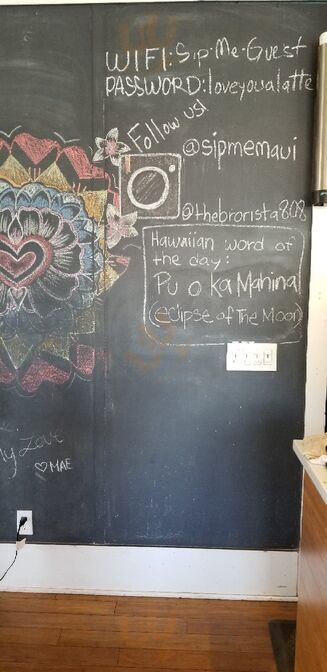 WIFI: Sip-Me-Guest
PASSWORD: loveyoualatte
Follow us!
@sipmemaui
@thebrorista808
Hawaiian word of
the day:
Pu o ka Mahina
(eclipse of The Moon)
My Love
♡MAE